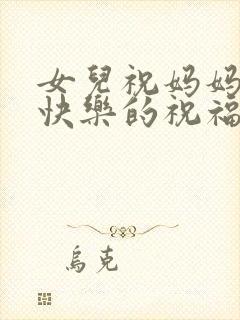 女兒祝妈妈
快樂的祝福
烏克